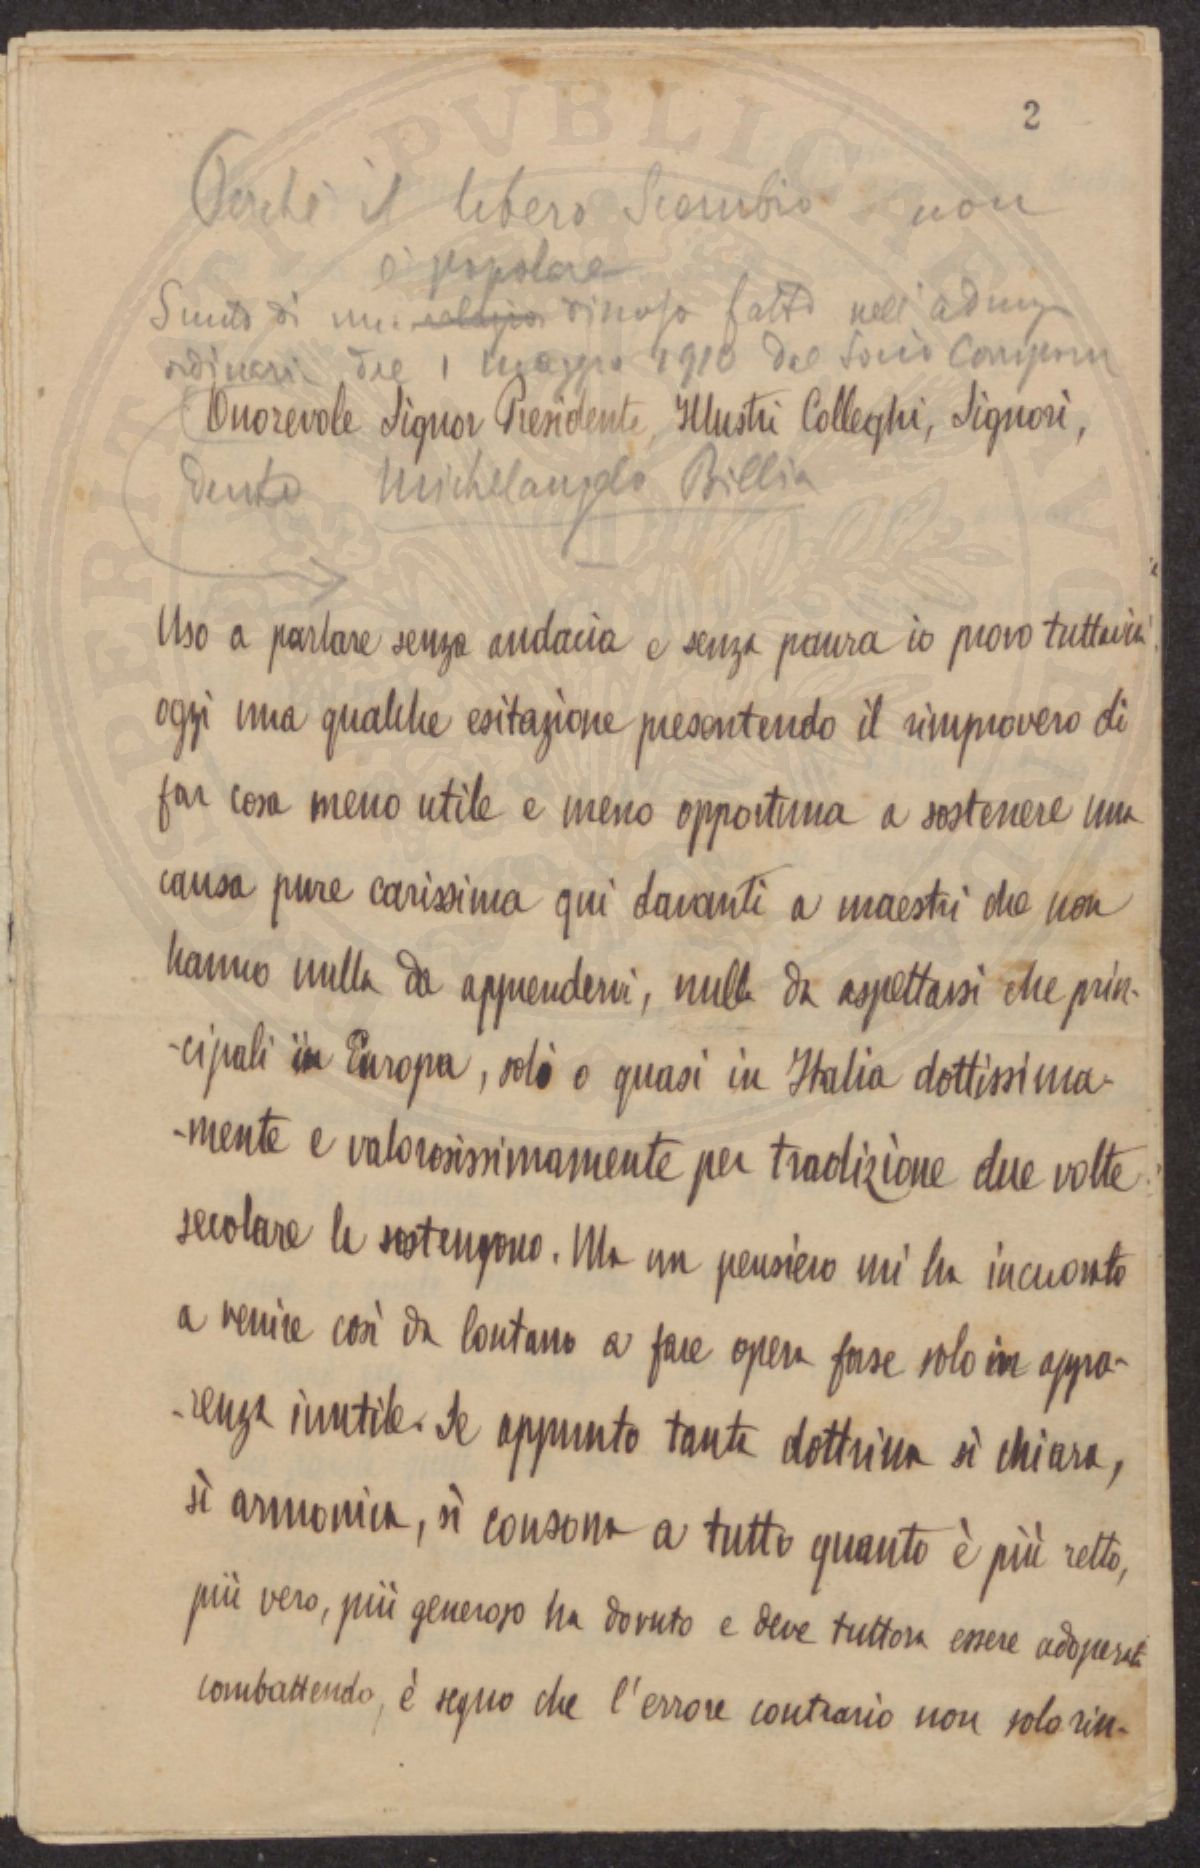 2
Perchè il libero Scambio non
è popolare
Sunto di un relazio discorso fatto nell'adunza
ordinaria del 1 maggio 1910 dal Socio Corrispon
Onorevole Signor Presidente, Illustri Colleghi, Signori,
dente Michelangelo Billia
Uso a parlare senza audacia e senza paura io provo tuttavia
oggi una qualche esitazione presentendo il rimprovero di
far cosa meno utile e meno opportuna a sostenere una
causa pure carissima qui davanti a maestri che non
hanno nulla da apprendervi, nulla da aspettarsi che prin-
-cipali in Europa, soli o quasi in Italia dottissima-
-mente e valorosissimamente per tradizione due volte
secolare la sostengono. Ma un pensiero mi ha incuorato
a venire così da lontano a fare opera forse solo in appa-
-renza inutile. Se appunto tanta dottrina sì chiara,
sì armonica, sì consona a tutto quanto è più retto,
più vero, più generoso ha dovuto e deve tuttora essere adoperata
combattendo, è segno che l'errore contrario non solo rin-